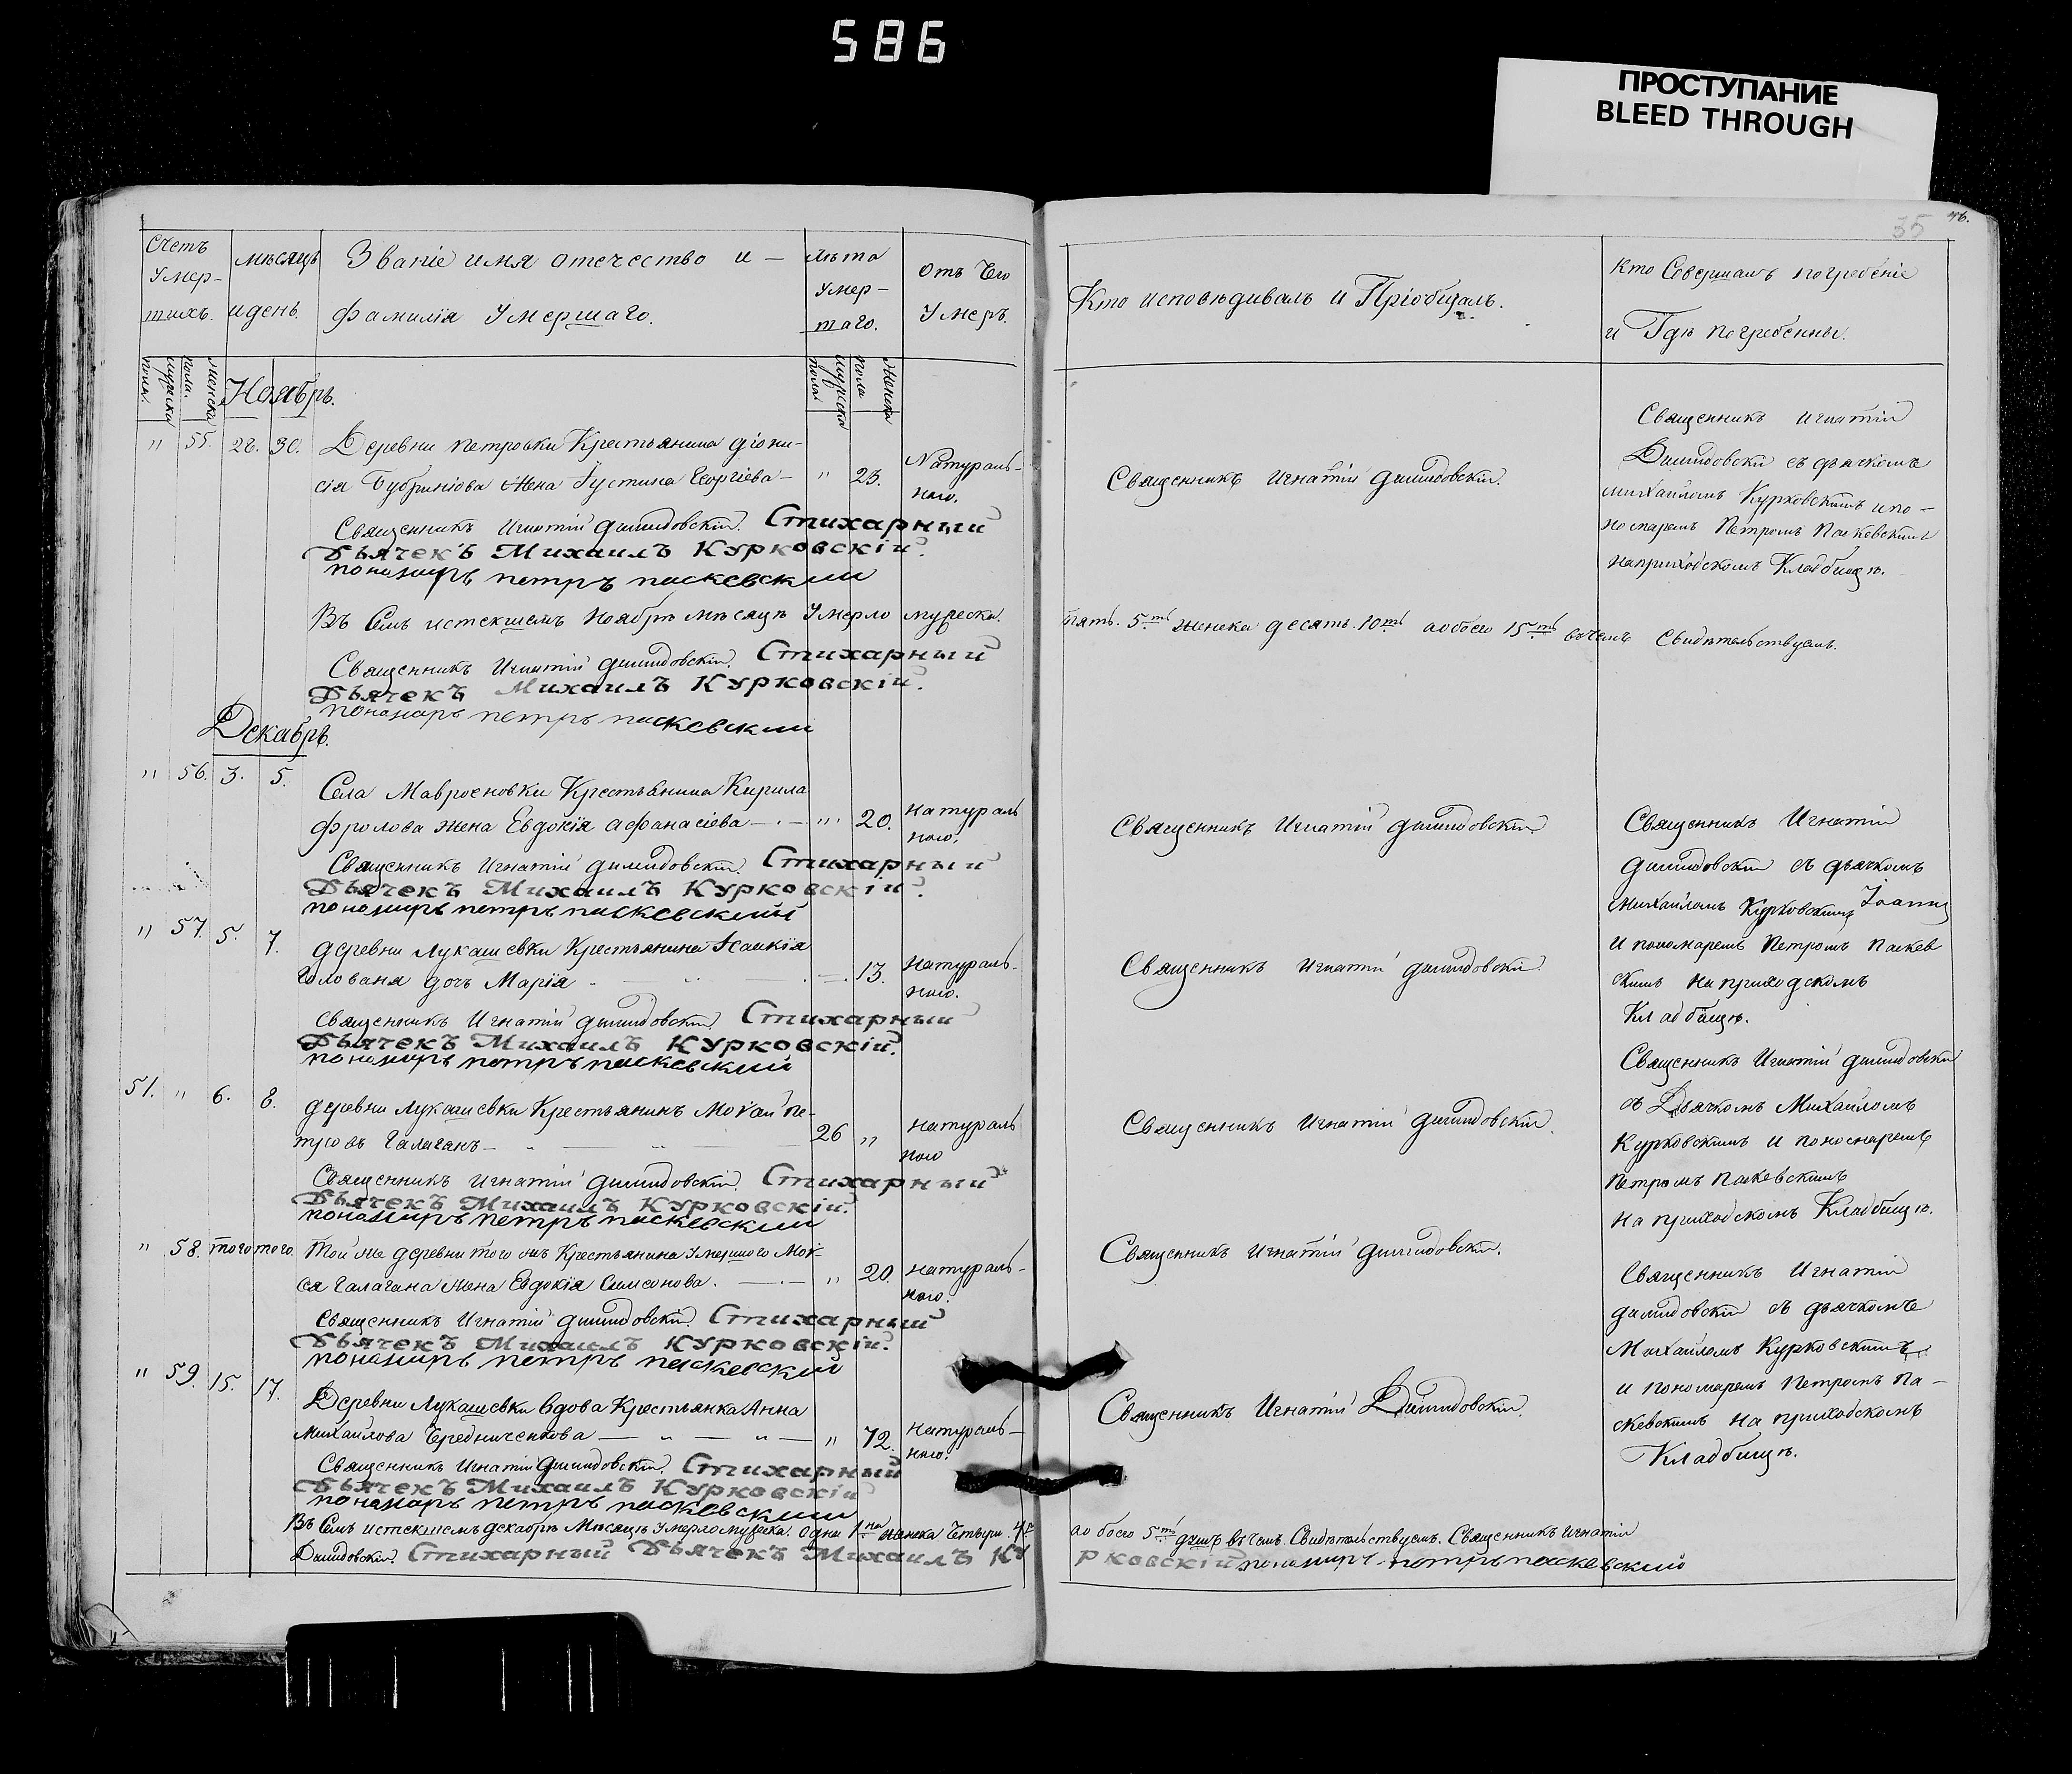 586
ПРОСТУПАНИЕ
BLEED THROUGH
35 46.
Счетъ Умер- шихъ.
мѣсяцъ и день.
Званіе имя отечество и — фамилія Умершаго.
лѣта Умер- шаго.
Отъ Чего Умеръ.
Кто исповѣдивалъ и Пріобщалъ.
Кто Совершалъ погребеніе
и Гдѣ погребенны.
мужеска пола. женска пола.
мужеска пола женска пола
Ноябрь.
" 55. 28. 30. Деревни Петровки Крестьянина Діони-
сія Бубриніова Жена Іустина Георгіева — " 23. Натураль-
ного.
Священникъ Игнатій Димидовскій.
Священникъ Игнатій
Димидовскій съ дьячкомъ
Михайломъ Курковскимъ и по-
номаремъ Петромъ Паскевскимъ
на приходскомъ Кладбищѣ.
Священникъ Игнатій Димидовскій. Стихарный
Дьячекъ Михаилъ Курковскій.
понамарь петръ паскевский
Въ Семъ истекшемъ Ноябрѣ мѣсяцѣ Умерло мужеска.
пять. 5ть женска десять. 10ть а обоего 15ть въ чемъ Свидѣтельствуемъ.
Священникъ Игнатій Димидовскій. Стихарный
Дьячекъ Михаилъ Курковскій.
понамарь петръ паскевский
Декабрь.
" 56. 3. 5. Села Мавросновки Крестьянина Кирила
Фролова жена Евдокія Афанасіева — " 20. Натураль
ного.
Священникъ Игнатій Димидовскій
Священникъ Игнатій
Димидовскій съ дьячкомъ
Михайломъ Курковскимъ
и пономаремъ Петромъ Паскев
скимъ на приходскомъ
Кладбищѣ.
Священникъ Игнатій Димидовскій. Стихарный
Дьячекъ Михаилъ Курковскій.
понамарь петръ паскевский
" 57. 5. 7. деревни Лукашевки Крестьянина Исаакія
Голованя дочь Марія — 13. Натураль-
ного.
Священникъ Игнатій Димидовскій.
Священникъ Игнатій Димидовскій. Стихарный
Дьячекъ Михаилъ Курковскій.
понамарь петръ паскевский
51. " 6. 8. деревни Лукашевки Крестьянинъ Моѵсй Пе-
тровъ Галаганъ — 26 " Натураль
ного
Священникъ Игнатій Димидовскій.
Священникъ Игнатій Димидовскій
съ Дьячкомъ Михайломъ
Курковскимъ и пономаремъ
Петромъ Паскевскимъ
на приходскомъ Кладбищѣ.
Священникъ Игнатій Димидовскій. Стихарный
Дьячекъ Михаилъ Курковскій.
понамарь петръ паскевский
" 58. того того. Той же деревни того жъ Крестьянина Умершого Моѵ-
сея Галагана жена Евдокія Симеонова. — " 20. Натураль-
ного.
Священникъ Игнатій Димидовскій.
Священникъ Игнатій
Димидовскій съ дьячкомъ
Михайломъ Курковскимъ
и пономаремъ Петромъ Па-
скевскимъ на приходскомъ
Кладбищѣ.
Священникъ Игнатій Димидовскій. Стихарный
Дьячекъ Михаилъ Курковскій.
понамарь петръ паскевский
" 59. 15. 17. Деревни Лукашевки вдова Крестьянка Анна
Михайлова Чередниченкова — " — " — " 72. Натураль-
ного.
Священникъ Игнатій Димидовскій.
Священникъ Игнатій Димидовскій. Стихарный
Дьячекъ Михаилъ Курковскій
понамарь петръ паскевский
Въ Семъ истекшемъ Декабрѣ Мѣсяцѣ Умерло мужеска. одна 1на женска Четыри. 4ри
а обоего 5ть душъ въ чемъ Свидѣтельствуемъ. Священникъ Игнатій
Димидовскій. Стихарный Дьячекъ Михаилъ Курковскій понамарь петръ паскевский